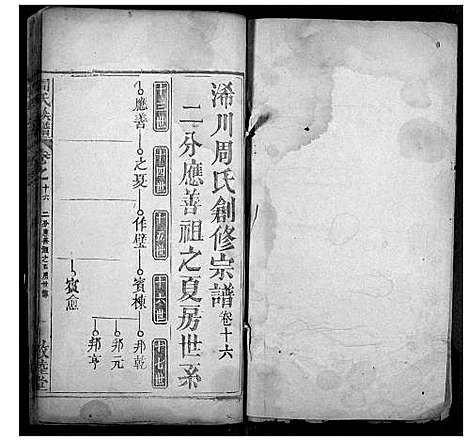 浠川周氏創修宗譜卷十六
二分應善祖之夏房世系
十三世
十四世
十五世
十六世
十七世
應善
之夏
作璧
賓棟
邦乾
邦元
邦亨
賓愈
周氏族譜
卷之十六
二分應善祖之夏房世系
敦睦堂